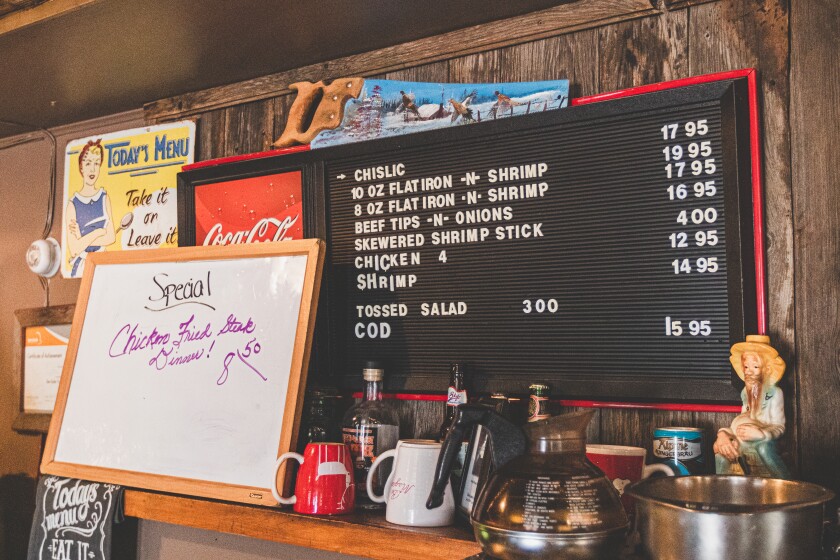 TODAY'S MENU
Take it
or
Leave it
Coca-Cola
CHISLIC 17 95
10 OZ FLATIRON -N- SHRIMP 19 95
8 OZ FLATIRON -N- SHRIMP 17 95
BEEF TIPS -N- ONIONS 16 95
SKEWERED SHRIMP STICK 4 00
CHICKEN 4 12 95
SHRIMP 14 95
TOSSED SALAD 3 00
COD 15 95
Special
Chicken Fried Steak
Dinner!
8 50
Today's
menu
EAT IT
Alpine